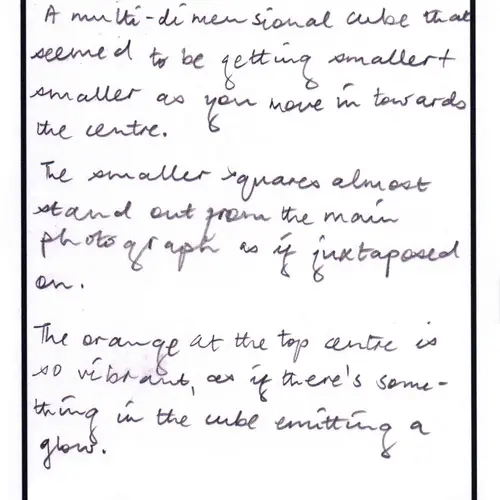 A multi-dimensional cube that
seemed to be getting smaller +
smaller as you move in towards
the centre.
The smaller squares almost
stand out from the main
photograph as if juxtaposed
on.
The orange at the top centre is
so vibrant, as if there's some-
thing in the cube emitting a
glow.